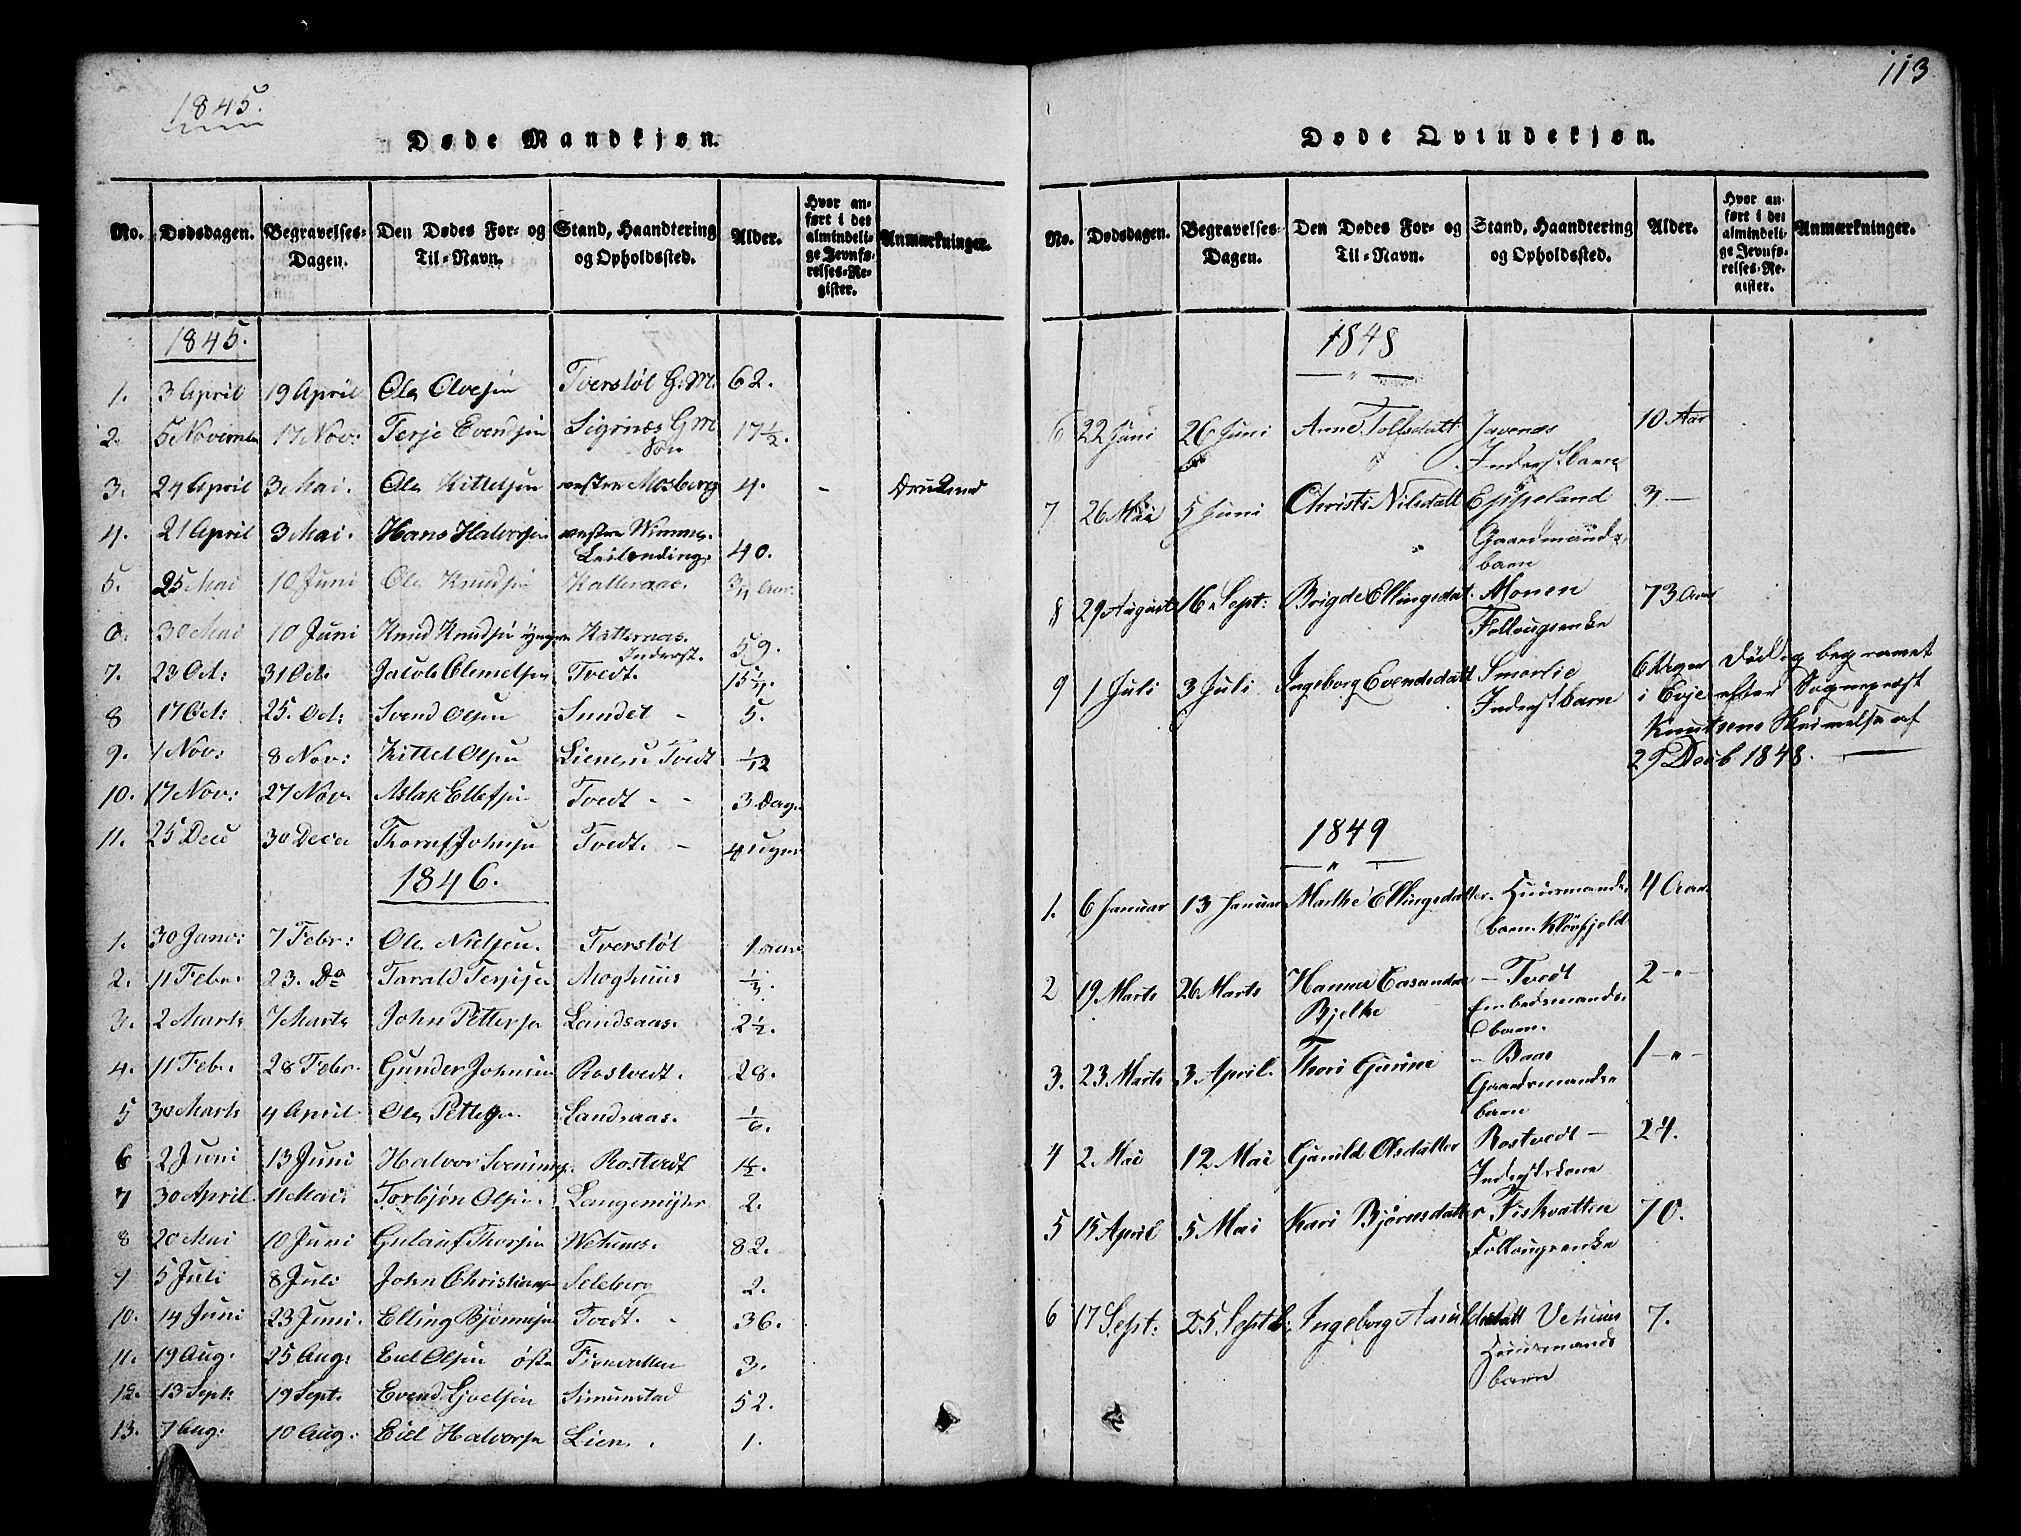 1845.
Døde Mandkjøn.
No. Dødsdagen. Begravelses-Dagen. Den Dødes For- og Til-Navn. Stand, Haandtering og Opholdssted. Alder. Hvor anført i det almindelige Jevnførelses-Register. Anmærkninger.
1845.
1. 3 April 19 April Ole Olvesen Tversløl G.M. 62.
2. 5 Novemr 17 Nov: Terje Evendsen Sigrnæs G M Søn 17½.
3. 24 April 3 Mai. Ole Kittelsen vestre Mosberg 4. - Druknet
4. 21 April 3 Mai. Hans Halvorsen vestre Leilending 40.
5. 25 Mai 10 Juni Ole Knudsen Katteraas. ¾ Aar.
6. 30 Mai 10 Juni Knud Knudsen yngre Katteraas. Inderst. 59.
7. 23 Oct: 31 Oct. Jacob Tvedt. 15¼.
8 17 Oct: 25. Oct: Svend Olsen Sundet - 5.
9. 1 Nov: 8 Nov: Kittel Olsen Tvedt 1/12
10. 17 Nov: 27 Nov. Aslak Ellefsen Tvedt - - 3 Dage
11. 25 Decb 30 Decbr Johnsen Tvedt. - 4 Uger
1846.
1. 30 Janv: 7 Febr: Ole Nielsen. Tversløl 1 Aar
2. 11 Febr. 23. Do Tarald Terjesen Moghuus ⅓.
3. 2 Marts 7 Marts John Pettersen Landsaas. 2½.
4. 11 Feb. 28 Febr. Gunder Johnsen Rostvedt. 28.
5 30 Marts 4 April Ole Pettersen Landsaas. 1/6.
6 2 Juni 13 Juni Halvor Rostvedt 1½.
7 30 April 11 Mai. Torbjøn Olsen. Langemyhr 2.
8 20 Mai 10 Juni Gulauf Thorsen Wehuus. 82.
9 5 Juli 8 Juli John Christiansen Seleberg 2.
10. 14 Juni 23 Juni. Elling Bjørnsen Tvedt. - 36.
11. 19 Aug. 25 Aug: Eiel Olsen østre Fiskvatten 3.
12. 13 Sept: 19 Sept. Evend Gjvelsen Simunstad 52.
13. 7 Aug: 10 Aug: Eiel Halvorsen Lien. 1.
113
Døde Qvindekjøn.
No. Dødsdagen. Begravelses-Dagen. Den Dødes For- og Til-Navn. Stand, Haandtering og Opholdssted. Alder. Hvor anført i det almindelige Jevnførelses-Register. Anmærkninger.
1848
6 22 Juni 26 Juni Anne Tolfsdatt. Javenæs 10 Aar
Inderstbarn
7 26 Mai 5 Juni Christi Nilsdatt Eppeland 3 -
Gaardmands
barn
8 29 August 16 Sept: Brigde Ellingsdat. Monen 73 Aar
Follougsenke
9 1 Juli 3 Juli Ingeborg Evendsdatt Smorlie 6 Uger Død og begravet
Inderstbarn i Evje efter Sognepræst
Knutsens Skrivelse af
29 Decb 1848. -
1849
1. 6 Januar 13 Januar Marthe Ellingsdatter. Huusmands 4 Aar
barn Kløvfjeld
2 19 Marts 26 Marts Hanna Casandra - Tvedt 2 - " -
Bjelke Embedsmands
barn.
3. 23 Marts 3 April. Thori Gurine - Baas 1 - " -
Gaardsmands
barn
4 2. Mai 12 Mai Gunild Olsdatter Rostvedt - 24.
Inderstkone
5 15 April 5 Mai Kari Bjørnsdatter Fiskvatten 70.
Follougsenke
6 17 Sept: 25 Septb: Ingeborg Asuldsdatt Vehuus 7.
Huusmands
barn